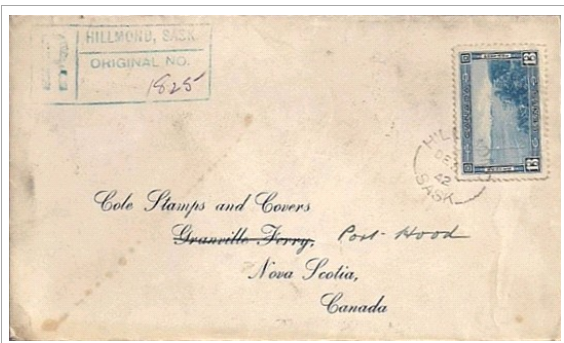 R HILLMOND, SASK.
ORIGINAL NO.
1825
CANADA
13 CENTS 13
HIL
DE
42
SASK
Cole Stamps and Covers
Granville Ferry, Port Hood
Nova Scotia,
Canada